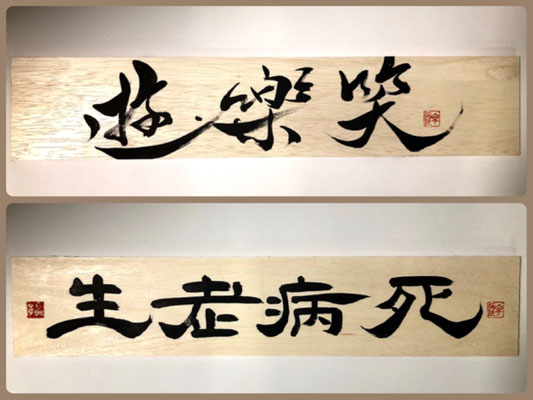 遊樂笑
生老病死